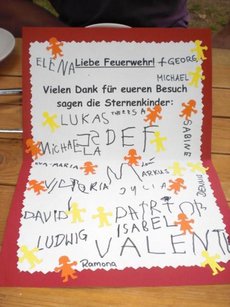 ELENA Liebe Feuerwehr! + GEORG
MICHAEL
Vielen Dank für eueren Besuch
sagen die Sternenkinder:
LUKAS THERESA
SABINE
MICHAELA
JOSEF
EVA-MARIA
MARKUS
VICTORIA
JULIA
DAVID
PATRICK
ISABEL
LUDWIG
VALENTI
Ramona